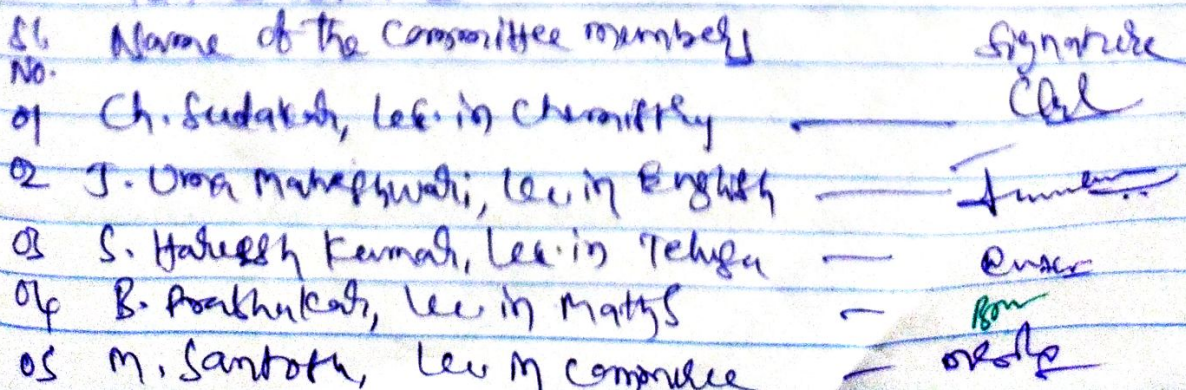 Sl. Name of the Committee members Signature
No.
01 Ch. Sudakar, Lec. in Chemistry
02 J. Uma Maheshwari, Lec in English
03 S. Haressh Kumar, Lec. in Telugu
04 B. Prabhakar, Lec in Maths
05 M. Santosh, Lec in Commerce